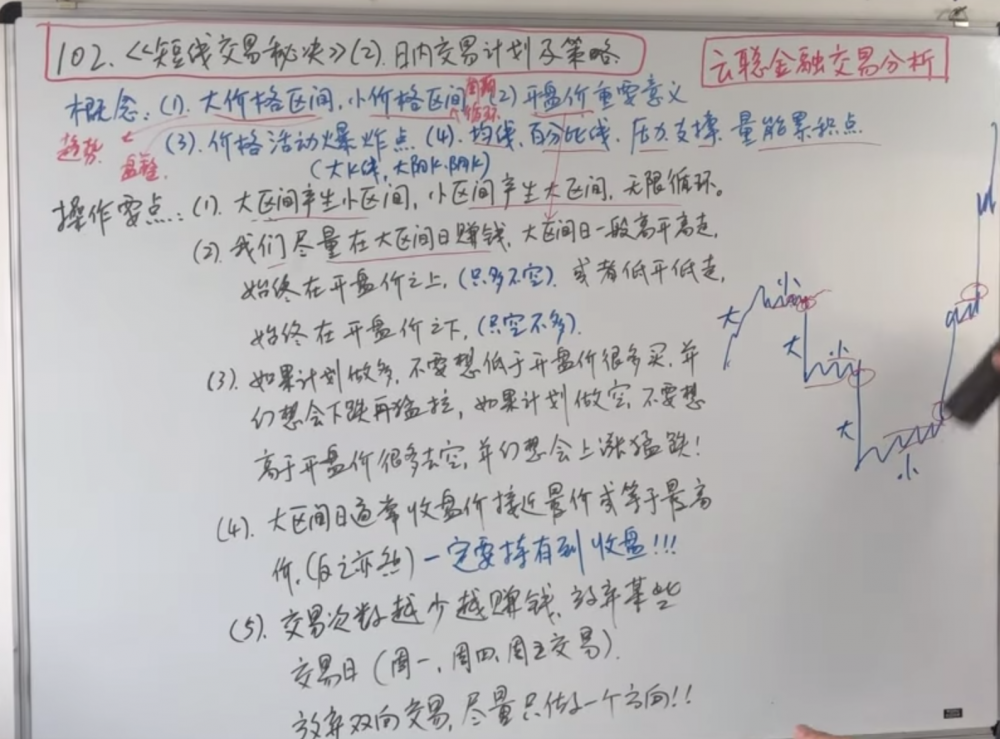 102.《短线交易秘决》(2).日内交易计划及策略.
云聪金融交易分析
概念:(1).大价格区间,小价格区间 (2)开盘价重要意义
周期
循环
趋势
盘整
(3).价格活动爆炸点 (4).均线,百分比线,压力支撑,量能累积点
(大K线,大阳K.阴K)
操作要点:(1).大区间产生小区间,小区间产生大区间,无限循环。
(2).我们尽量在大区间日赚钱,大区间日一般高开高走,
始终在开盘价之上,(只多不空).或者低开低走,
始终在开盘价之下,(只空不多).
(3).如果计划做多,不要想低于开盘价很多买,并
幻想会下跌再猛拉,如果计划做空,不要想
高于开盘价很多去空,并幻想会上涨猛跌!
(4).大区间日通常收盘价接近最价或等于最高
价.(反之亦然)一定要持有到收盘!!!
(5).交易次数越少越赚钱,放弃某些
交易日(周一,周四,周五交易).
放弃双向交易,尽量只做一个方向!!
大
小
大
小
大
小